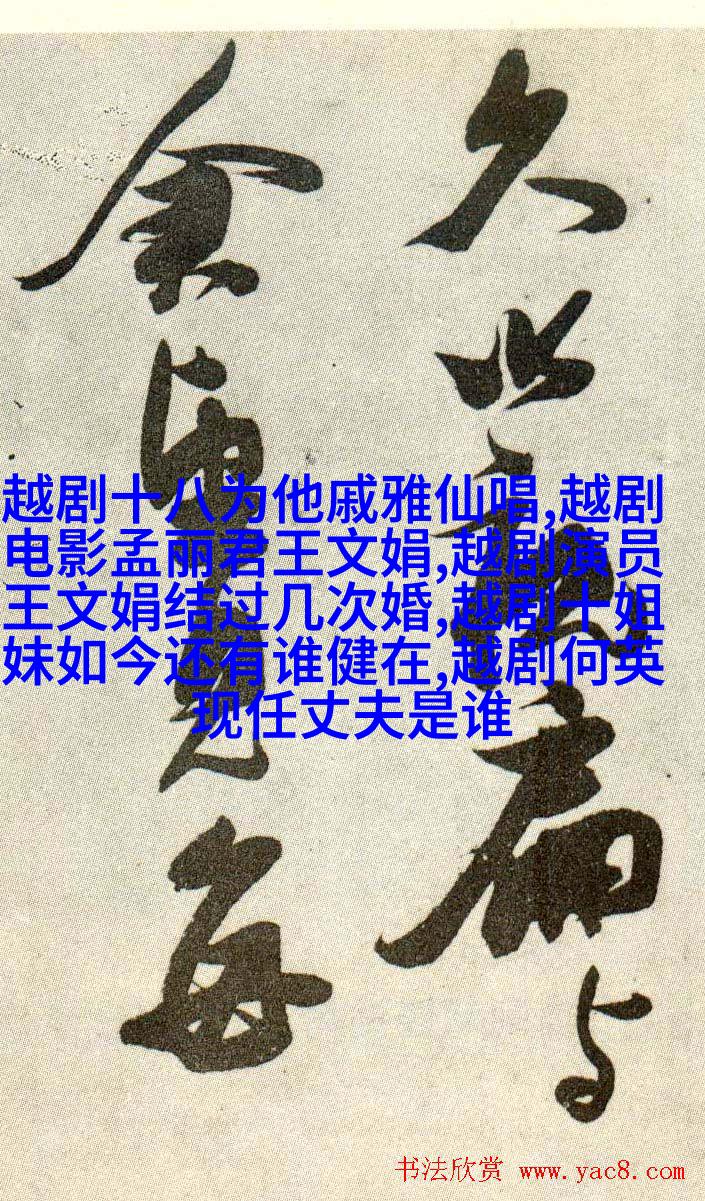 越剧十八为他戚雅仙唱,越剧
电影孟丽君王文娟,越剧演员
王文娟结过几次婚,越剧十姐
妹如今还有谁健在,越剧何英
现任丈夫是谁
书法欣赏 www.yac8.com